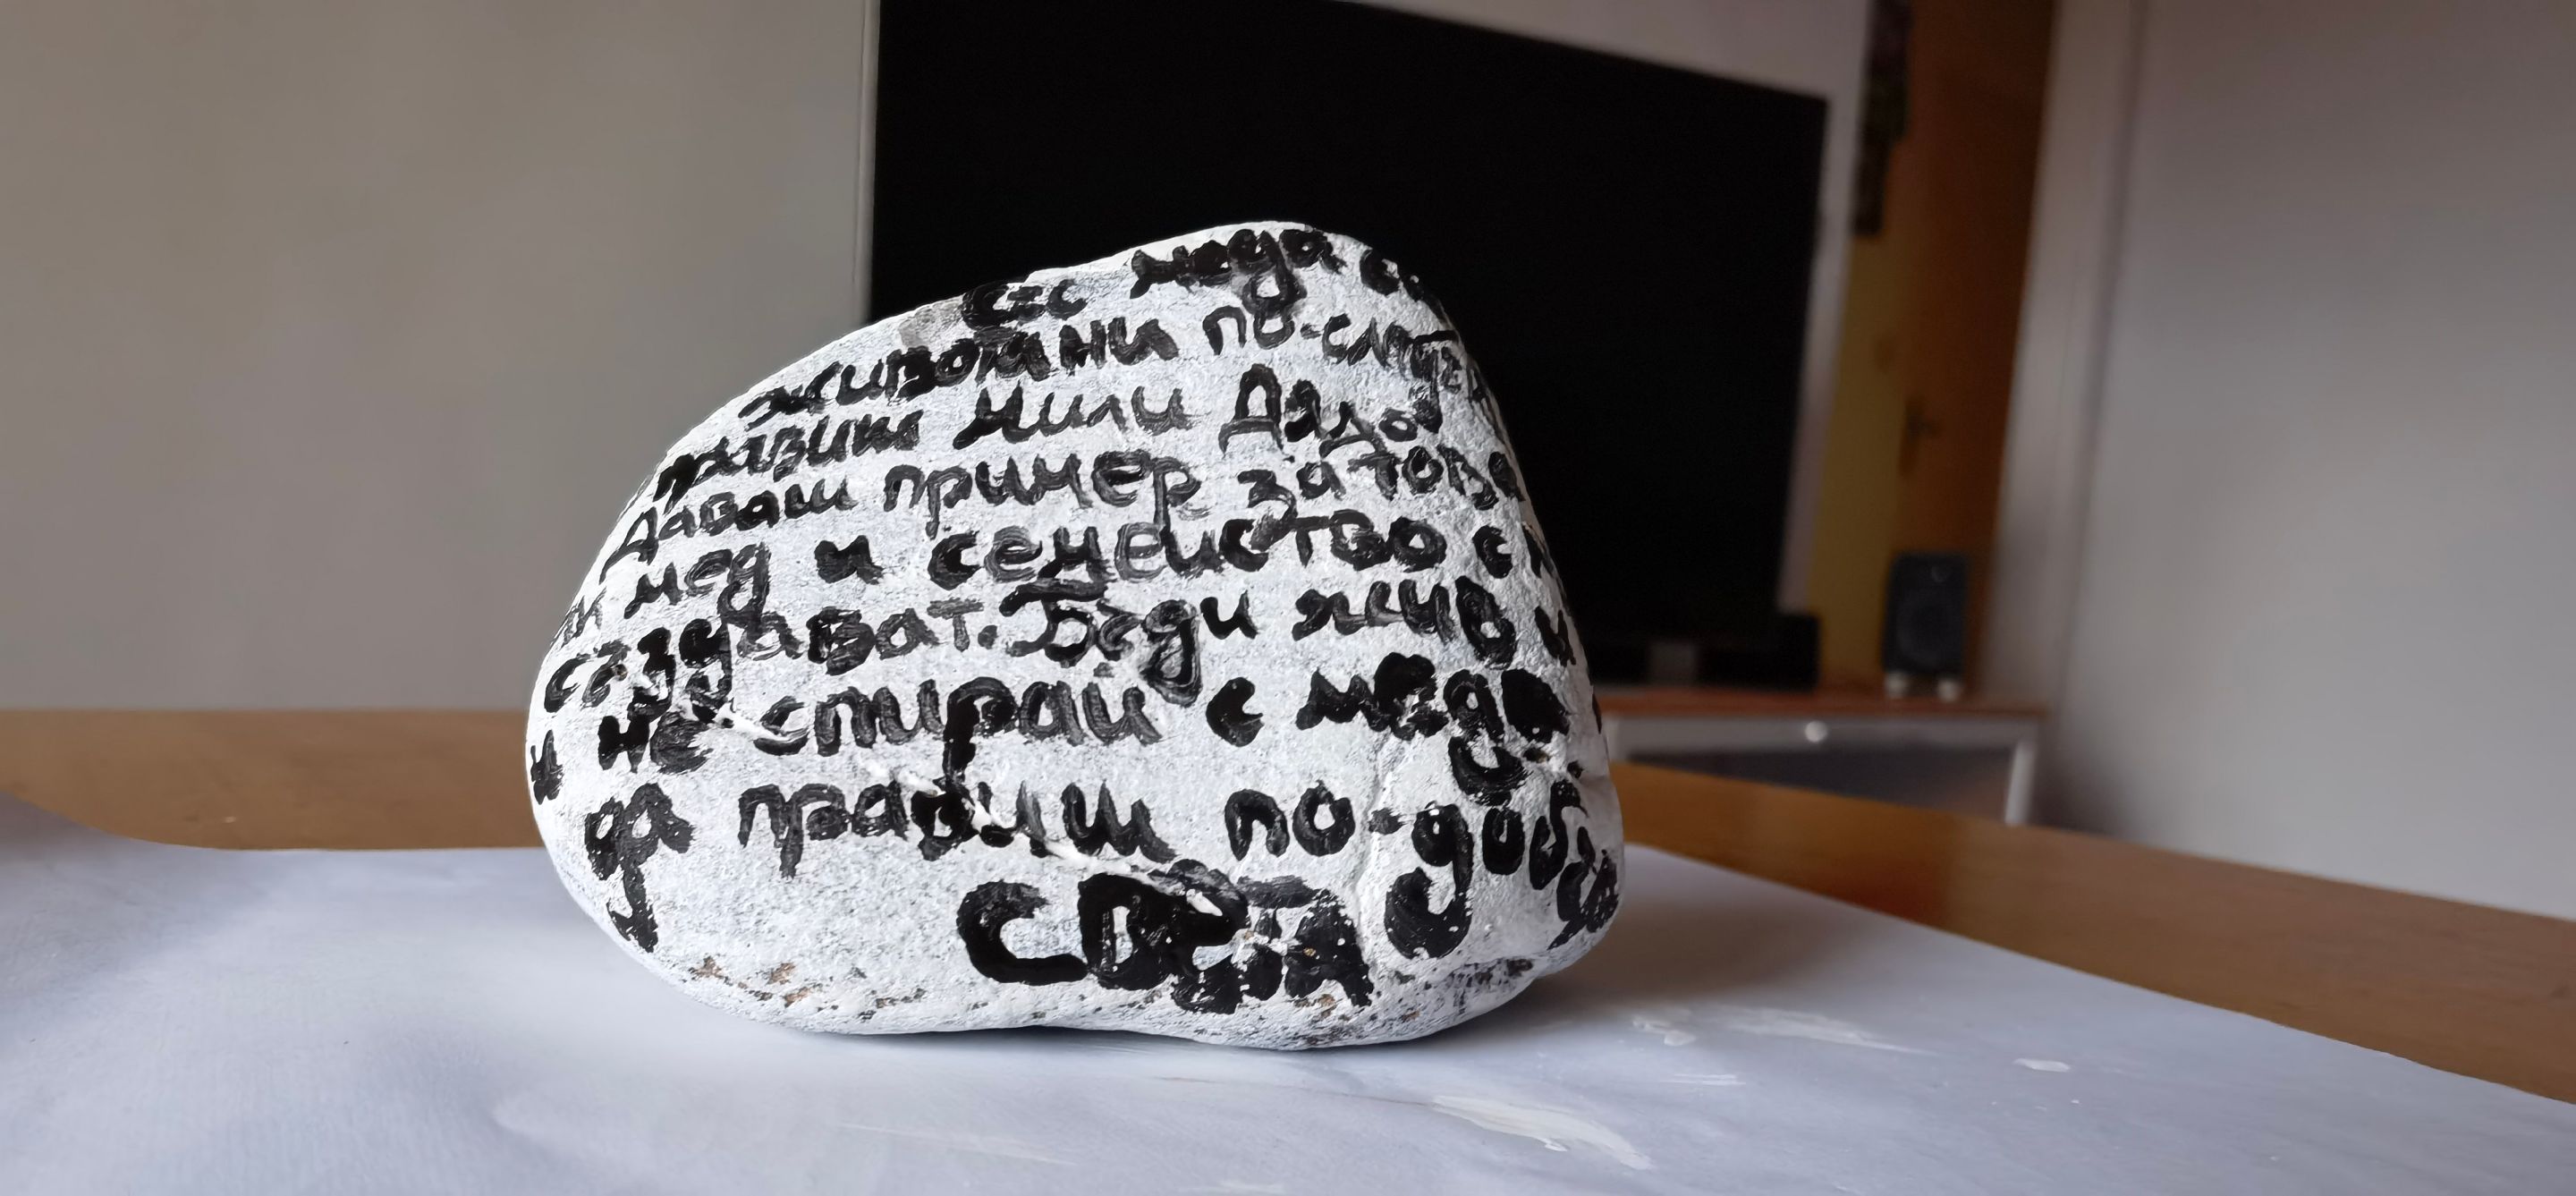 Със меда си
животни по-слад
правиш мили Дядо
Даваш пример за това
мед и семейство с
създават. Бъди жив и
и не спирай с меда си
да правиш по-добър
света